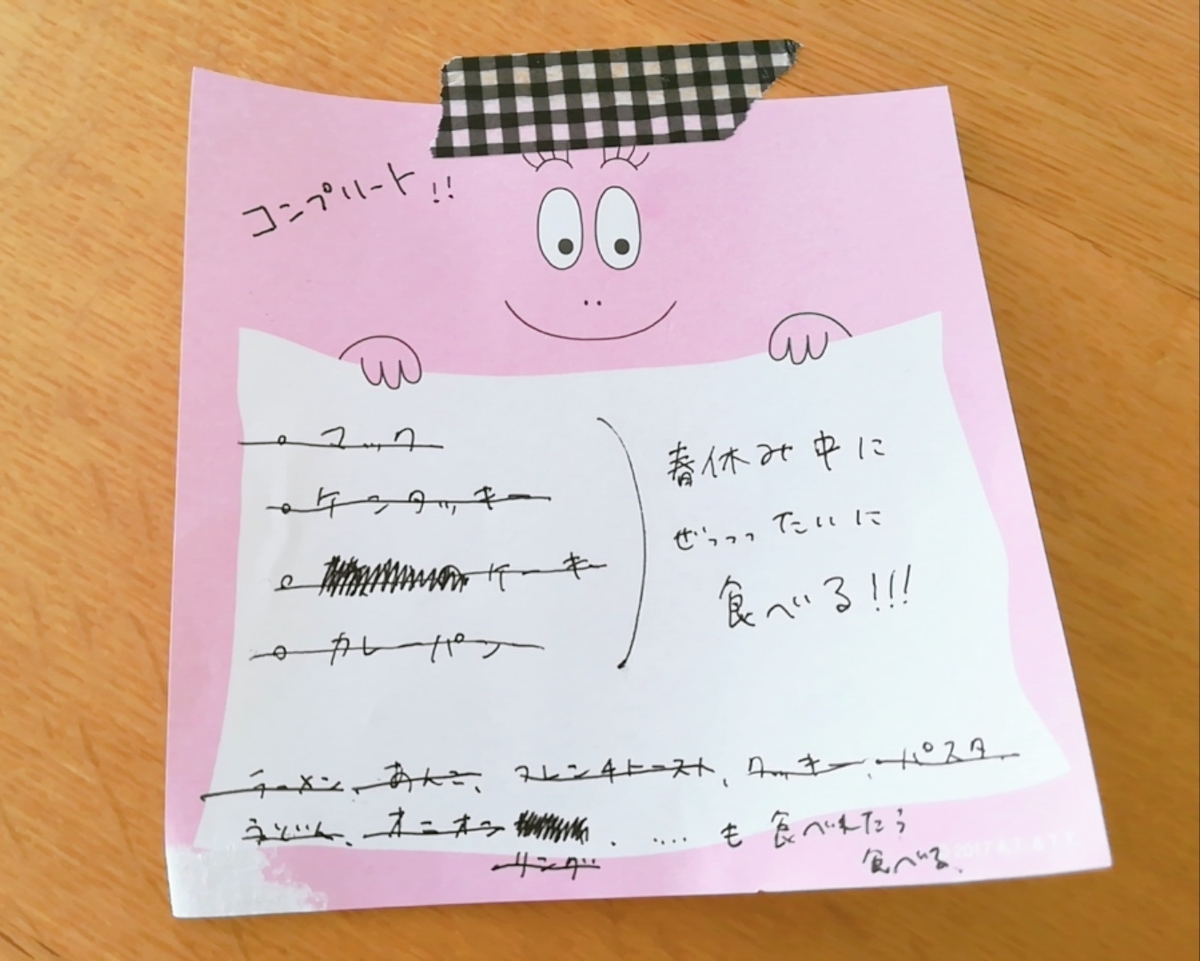 コンプリート!!
マック
ケンタッキー
のケーキ
カレーパン
春休み中に
ぜっっったいに
食べる!!!
ラーメン、あんこ、フレンチトースト、クッキー、パスタ
オニオン 、‥‥も食べれたら
リング
食べる。